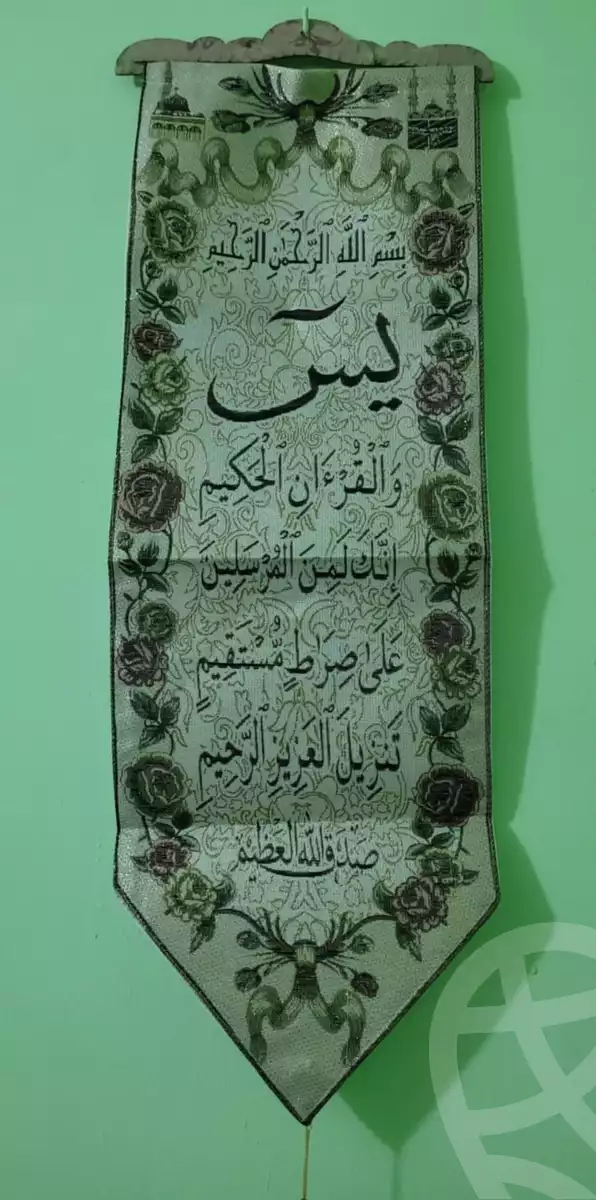 بِسْمِ ٱللَّهِ ٱلرَّحْمَٰنِ ٱلرَّحِيمِ
يسٓ
وَٱلْقُرْءَانِ ٱلْحَكِيمِ
إِنَّكَ لَمِنَ ٱلْمُرْسَلِينَ
عَلَىٰ صِرَاطٍ مُّسْتَقِيمٍ
تَنزِيلَ ٱلْعَزِيزِ ٱلرَّحِيمِ
صَدَقَ اللَّهُ الْعَظِيمُ